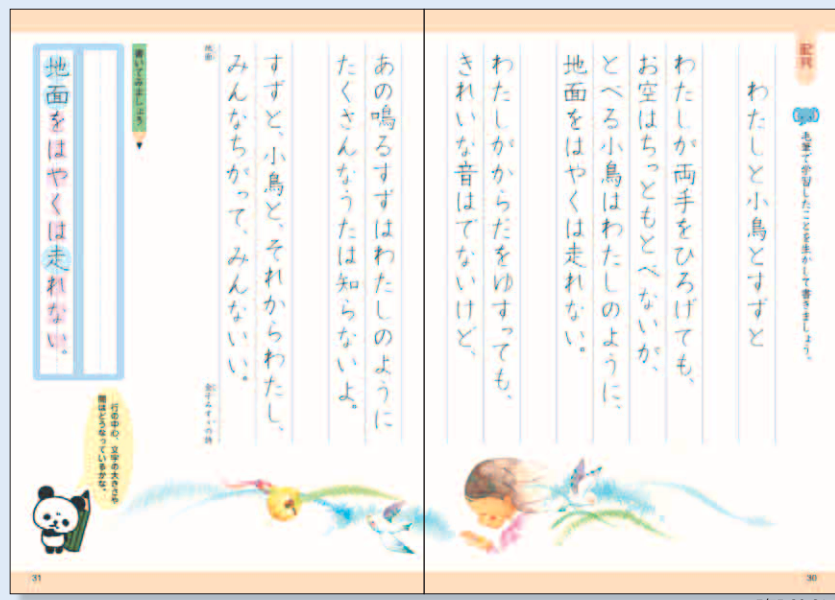 毛筆で学習したことを生かして書きましょう。
わたしと小鳥とすずと
わたしが両手をひろげても、
お空はちっともとべないが、
とべる小鳥はわたしのように、
地面をはやくは走れない。
わたしがからだをゆすっても、
きれいな音はでないけど、
30
あの鳴るすずはわたしのように
たくさんなうたは知らないよ。
すずと、小鳥と、それからわたし、
みんなちがって、みんないい。
地面
金子みすゞの詩
書いてみましょう
地面をはやくは走れない。
行の中心、文字の大きさや
間はどうなっているかな。
31